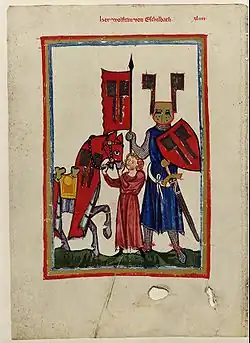 her wolfran von Eschilbach